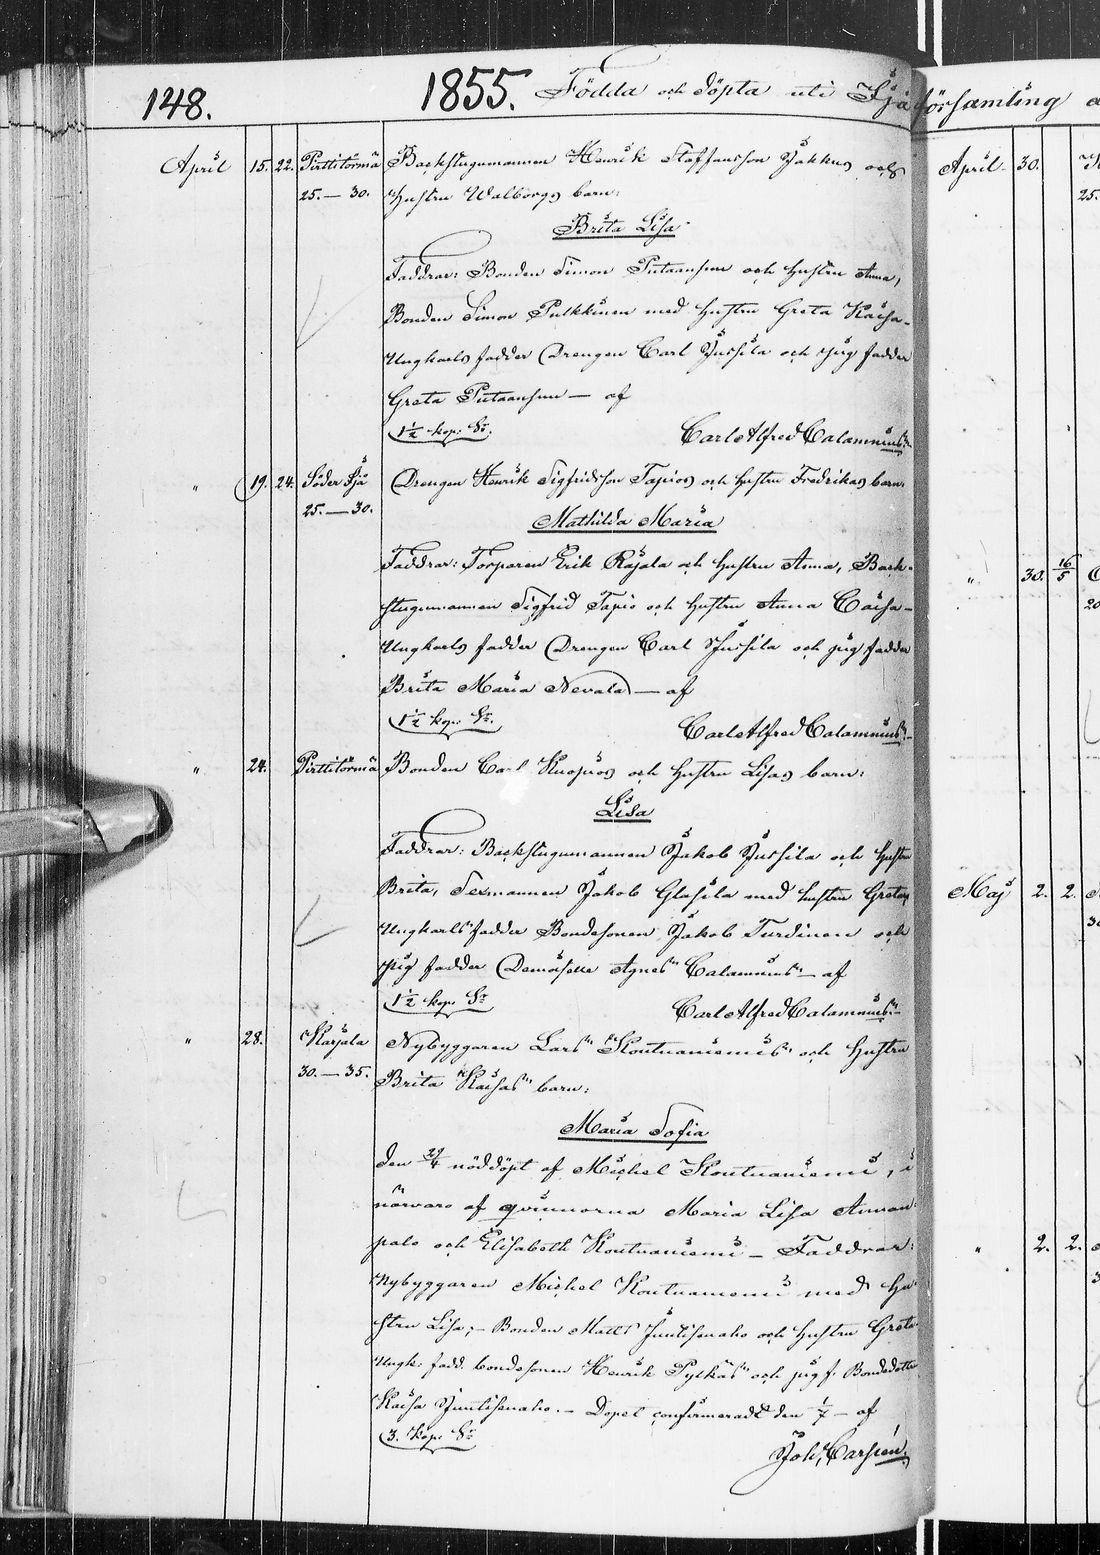 148. 1855. Födda och döpta uti Ijå församling
April 15. 22. Pirttitörmä Backstugumannen Henrik Staffansson Jakkus och
25.—30. Hustru Walborgs barn:
Brita Lisa
Faddrar: Bonden Simon Putaansuu och hustru Anna,
Bonden Simon Pulkkinen med hustru Greta Kaisa–
Ungkarls fadder Drengen Carl Jussila och pig fadder
Greta Putaansuu — af
1 1/2 kop. Sr.
Carl Alfred Calamnius
" 19. 24. Söder Ijå Drengen Henrik Sigfridsson Tapios och hustru Fredrikas barn:
25.—30.
Mathilda Maria
Faddrar: Torparen Erik Rajala och hustru Anna, Back-
stugumannen Sigfrid Tapio och hustru Anna Caisa–
Ungkarls fadder Drengen Carl Jussila och pig fadder
Brita Maria Nevala — af
1 1/2 kop. Sr.
Carl Alfred Calamnius
" 24. Pirttitörmä Bonden Carl Kuopus och hustru Lisas barn:
Lisa
Faddrar: Backstugumannen Jakob Jussila och hustru
Brita, Sexmannen Jakob med hustru Greta,
Ungkarls fadder Bondesonen Jakob Turdinen och
pig fadder Demoiselle Agnes Calamnius — af
1 1/2 kop. Sr
Carl Alfred Calamnius
" 28. Karjala Nybyggaren Lars Kontuaniemis och hustru
30.—35. Brita Kaisas barn:
Maria Sofia
den 29/4 nöddöpt af Michel Kontuaniemi, i
närvaro af qvinnorna Maria Lisa Annan
palo och Elisabeth Kontuaniemi — Faddrar:
Nybyggaren Michel Kontuaniemi med hu
stru Lisa; — Bonden Matts Juntisenaho och hustru Greta
Ungk. fadd. bondesonen Henrik Pyykäs och pig f. Bondedottr.
Kaisa Juntisenaho. — Dopet confirmeradt den 1/7 — af
3. kop. Sr
Joh. Carsten.
April 30.
25.
" 30. 16/5
20
Maj 2. 2.
30
" 2. 2.
3